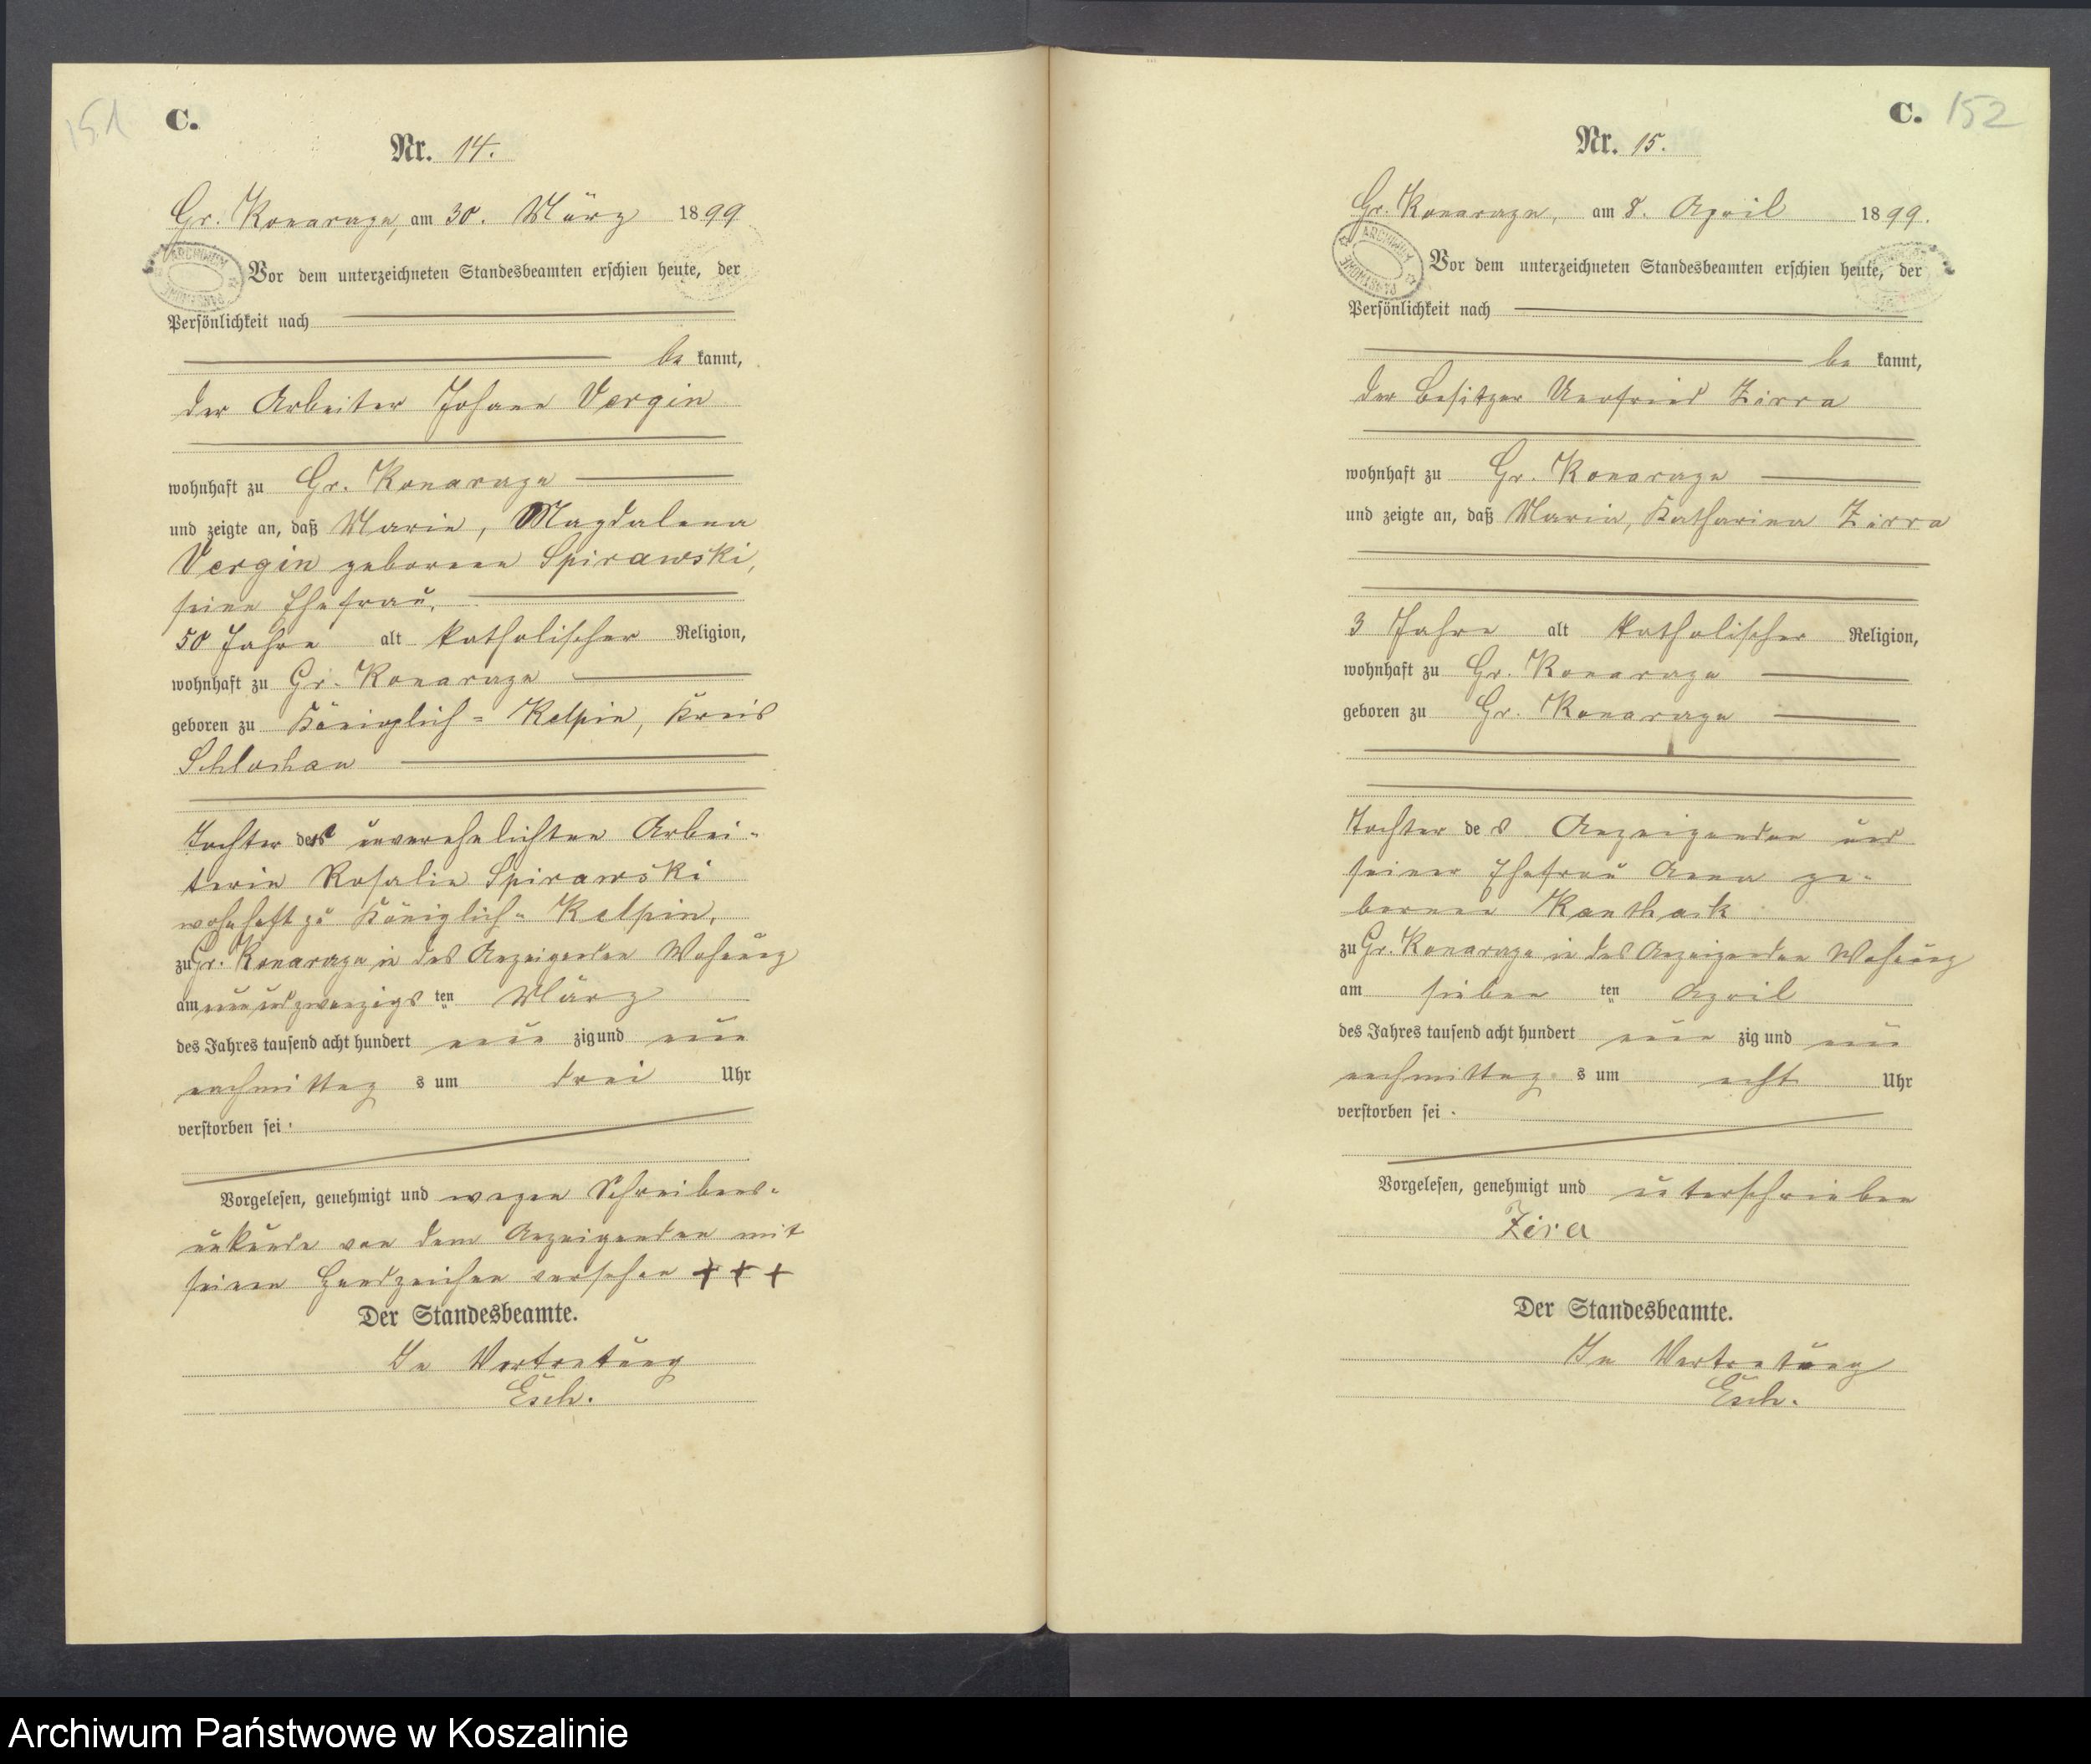 151
C.
Nr. 14.
Gr. Konarczyn, am 30. März 1899
ARCHIWUM PAŃSTWOWE
Vor dem unterzeichneten Standesbeamten erschien heute, der
Persönlichkeit nach
be kannt,
der Arbeiter Johann Vergin
wohnhaft zu Gr. Konarzyn
und zeigte an, daß Marie, Magdalena
Vergin geborene Spirawski,
seine Ehefrau,
50 Jahre alt katholischer Religion,
wohnhaft zu Gr. Konarzyn
geboren zu Königlich = Kelpin, Kreis
Schlochau
Tochter der unverehelichten Arbei-
terin Rosalie Spirawski
wohnhaft zu Königlich- Kelpin,
zu Gr. Konarzyn in des Anzeigenden Wohnung
am neunundzwanzigs ten März
des Jahres tausend acht hundert neun zig und neun
nachmittag s um drei Uhr
verstorben sei.
Vorgelesen, genehmigt und wegen Schreibens-
unkunde von dem Anzeigenden mit
seinen Handzeichen versehen + + +
Der Standesbeamte.
In Vertretung
Esch.
C. 152
Nr. 15.
Gr. Konarzyn, am 8. April 1899.
ARCHIWUM PAŃSTWOWE
Vor dem unterzeichneten Standesbeamten erschien heute, der
Persönlichkeit nach
be kannt,
der Besitzer Zirra
wohnhaft zu Gr. Konarzyn
und zeigte an, daß Maria, Katharina Zirra
3 Jahre alt katholischer Religion,
wohnhaft zu Gr. Konarzyn
geboren zu Gr. Konarzyn
Tochter des Anzeigenden und
seiner Ehefrau Anna ge-
borene Kanthack
zu Gr. Konarzyn in des Anzeigenden Wohnung
am sieben ten April
des Jahres tausend acht hundert neun zig und neun
nachmittag s um acht Uhr
verstorben sei.
Vorgelesen, genehmigt und unterschrieben
Zira
Der Standesbeamte.
In Vertretung
Esch.
Archiwum Państwowe w Koszalinie